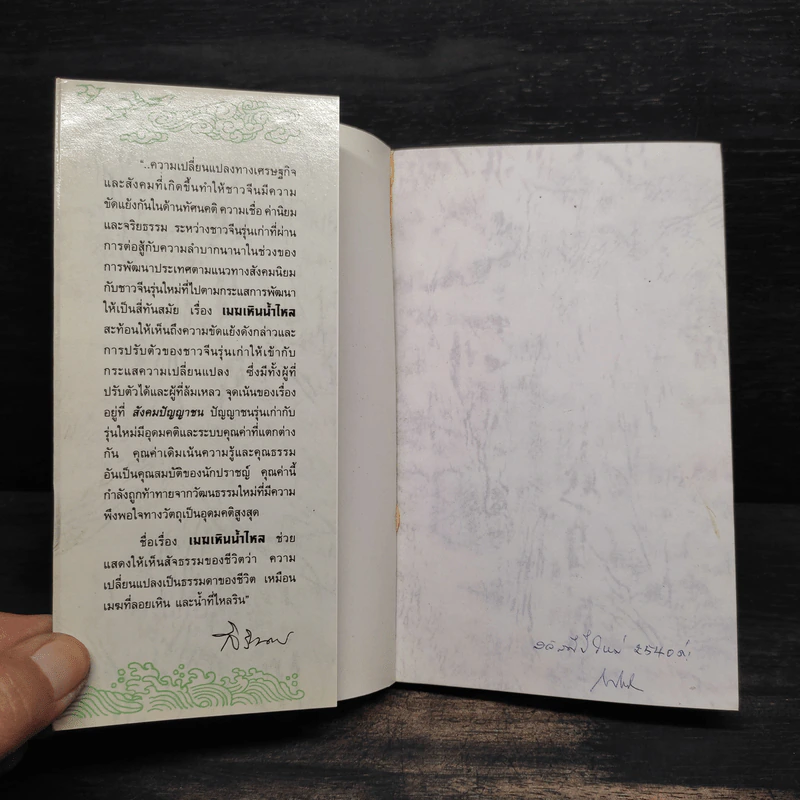 “..ความเปลี่ยนแปลงทางเศรษฐกิจ
และสังคมที่เกิดขึ้นทำให้ชาวจีนมีความ
ขัดแย้งกันในด้านทัศนคติ ความเชื่อ ค่านิยม
และจริยธรรม ระหว่างชาวจีนรุ่นเก่าที่ผ่าน
การต่อสู้กับความลำบากนานาในช่วงของ
การพัฒนาประเทศตามแนวทางสังคมนิยม
กับชาวจีนรุ่นใหม่ที่ไปตามกระแสการพัฒนา
ให้เป็นสี่ทันสมัย เรื่อง เมฆเหินน้ำไหล
สะท้อนให้เห็นถึงความขัดแย้งดังกล่าวและ
การปรับตัวของชาวจีนรุ่นเก่าให้เข้ากับ
กระแสความเปลี่ยนแปลง ซึ่งมีทั้งผู้ที่
ปรับตัวได้และผู้ที่ล้มเหลว จุดเน้นของเรื่อง
อยู่ที่ สังคมปัญญาชน ปัญญาชนรุ่นเก่ากับ
รุ่นใหม่มีอุดมคติและระบบคุณค่าที่แตกต่าง
กัน คุณค่าเดิมเน้นความรู้และคุณธรรม
อันเป็นคุณสมบัติของนักปราชญ์ คุณค่านี้
กำลังถูกท้าทายจากวัฒนธรรมใหม่ที่มีความ
พึงพอใจทางวัตถุเป็นอุดมคติสูงสุด
ชื่อเรื่อง เมฆเหินน้ำไหล ช่วย
แสดงให้เห็นสัจธรรมของชีวิตว่า ความ
เปลี่ยนแปลงเป็นธรรมดาของชีวิต เหมือน
เมฆที่ลอยเหิน และน้ำที่ไหลริน”
สวัสดีปีใหม่ 2540ค่ะ